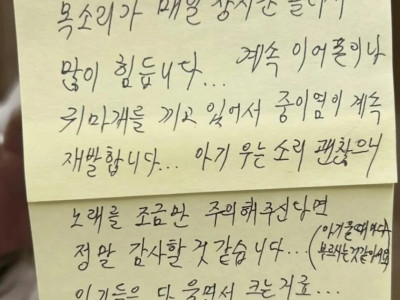 목소리가 매일 장시간 들려서
많이 힘듭니다... 계속 이어폰이나
귀마개를 끼고 있어서 중이염이 계속
재발합니다... 아기 우는 소리 괜찮으니
노래를 조금만 주의해주신다면
정말 감사할 것 같습니다... (아기 울때마다
부르시는것같아서요)
아기들은 다 울면서 크는거로...